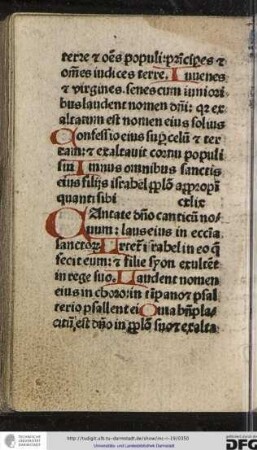 terre ⁊ oēs populi: prīcipes ⁊
om̄es iudices terre. Iuuenes
⁊ virgines. senes cum iuniori
bus laudent nomen dn̄i: qr ex
altatum est nomen eius solus
Confessio eius sup̱ celū ⁊ ter
ram: ⁊ exaltauit cornu populi
sui Himnus omnibus sanctis
eius filijs israhel pplō apropi
quanti sibi cxlix
CAntate dn̄o canticū no
uum: laus eius in eccīa
sanctoꝝ Letet israhel in eo q
fecit eum: ⁊ filie syon exultēt
in rege suo. Laudent nomen
eius in choro: in tīpano ⁊ psal
terio psallent ei Quia bn̄pla
citū est dn̄o in pplō suo ⁊ exalta
TECHNISCHE UNIVERSITÄT DARMSTADT
http://tudigit.ulb.tu-darmstadt.de/show/inc-ii-19/0350
Universitäts- und Landesbibliothek Darmstadt
DFG